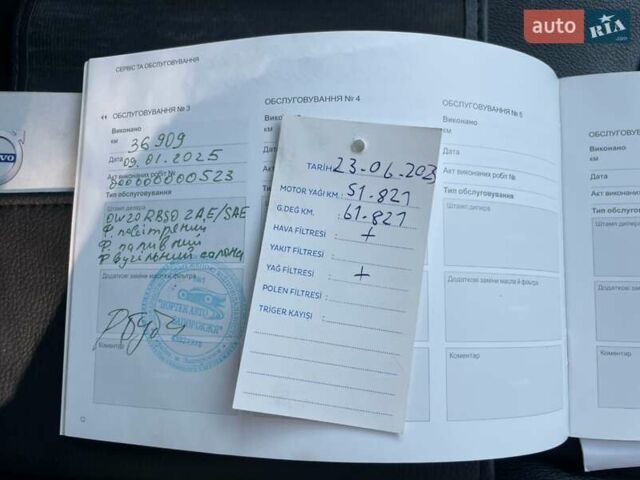 auto RIA
.com
СЕРВІС ТА ОБСЛУГОВУВАННЯ
ОБСЛУГОВУВАННЯ № 3
Виконано
км 36909
Дата 09.01.2025
Акт виконаних робіт №
Тип обслуговування
Штамп дилера
0W20 RBS0 2AE/SAE
Ф повітряний
Ф паливний
Ф вугільний салона
Додаткові заміни масла й фільтра
Коментар
ОБСЛУГОВУВАННЯ № 4
TARİH
MOTOR YAĞI KM.: 51.821
G.DEĞ KM. : 61.821
HAVA FİLTRESİ : +
YAKIT FİLTRESİ :
YAĞ FİLTRESİ : +
POLEN FİLTRESİ :
TRİGER KAYIŞI :
ОБСЛУГОВУВАННЯ № 5
Виконано
км
Дата
Акт виконаних робіт №
Тип обслуговування
Штамп дилера
Додаткові заміни масла й фільтра
Коментар
ОБСЛУГОВУВАННЯ
Виконано
км
Дата
Акт виконаних
Тип обслуговування
Штамп дилера
Додаткові заміни
Коментар